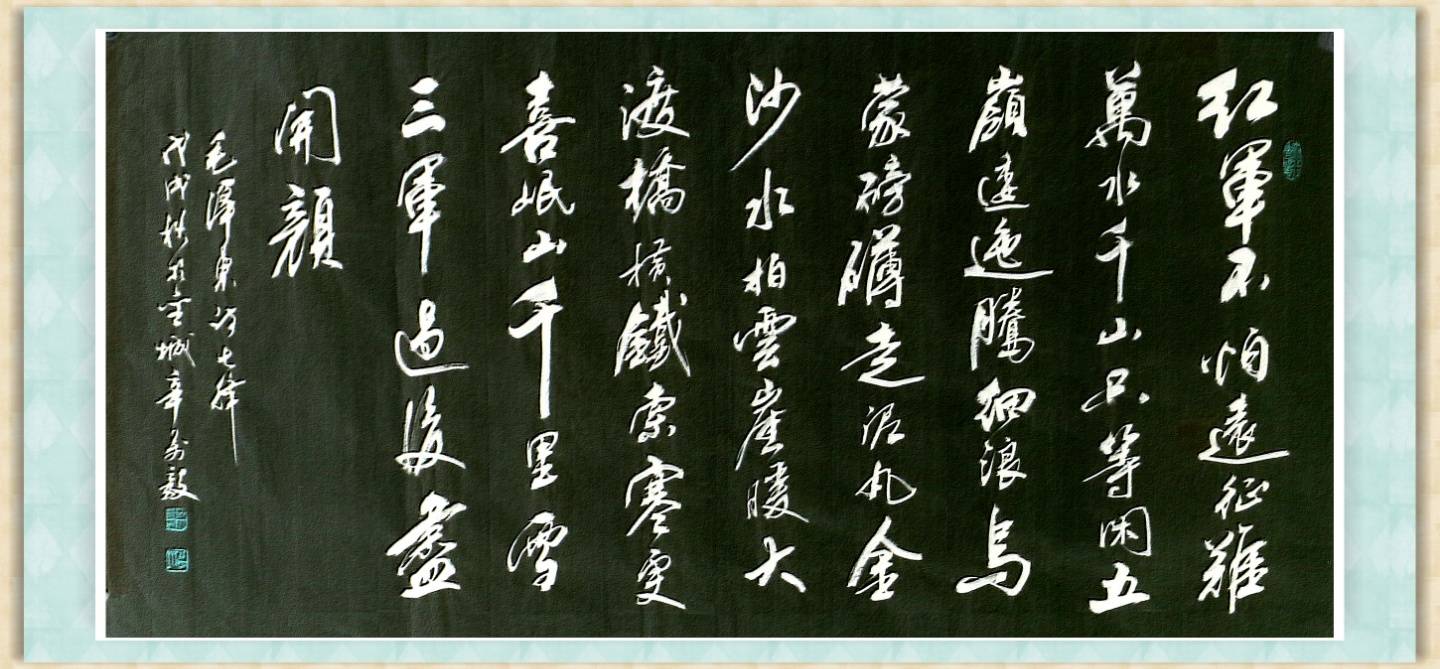 紅軍不怕遠征難
萬水千山只等闲五
嶺逶迤騰細浪烏
蒙磅礴走泥丸金
沙水拍雲崖暖大
渡橋橫鐵索寒更
喜岷山千里雪
三軍過後盡
開顏
毛澤東詩七律
戊戌秋於金城辛萬毅